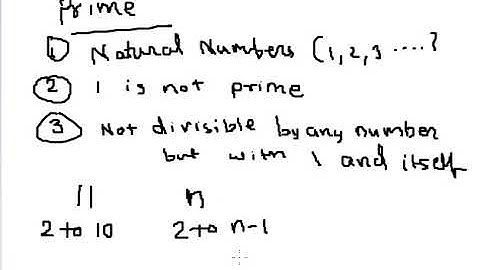 Prime
1 Natural Numbers (1, 2, 3 ....}
2 1 is not prime
3 Not divisible by any number
but with 1 and itself
11 n
2 to 10 2 to n-1